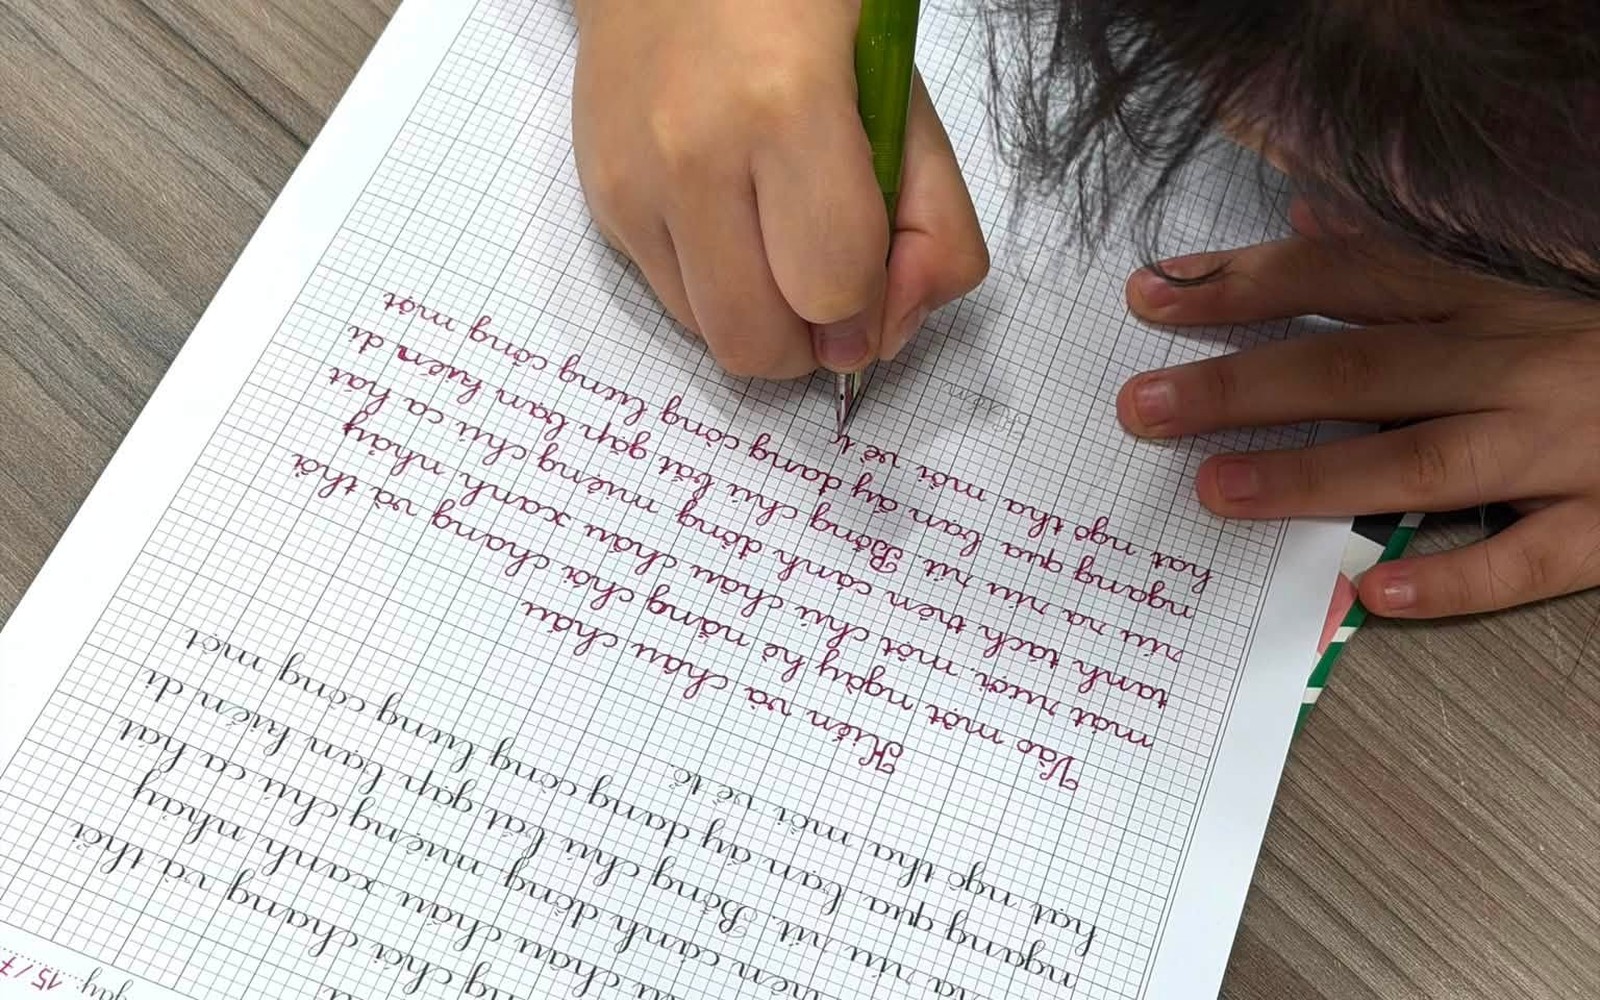 gày: 15/7
chói chang và thời
châu chấu xanh nhảy
trên cánh đồng, miệng chú ca hát
ra ríu rít. Bỗng chú bắt gặp bạn kiến đi
ngang qua, bạn ấy đang còng lưng cõng một
hạt ngô tha mới về tổ.
Kiến và châu chấu
Vào một ngày hè nắng chói chang và thời
mát rượi, một chú châu chấu xanh nhảy
tanh tách trên cánh đồng, miệng chú ca hát
ríu ra ríu rít. Bỗng chú bắt gặp bạn kiến đi
ngang qua, bạn ấy đang còng lưng cõng một
hạt ngô tha mới về t